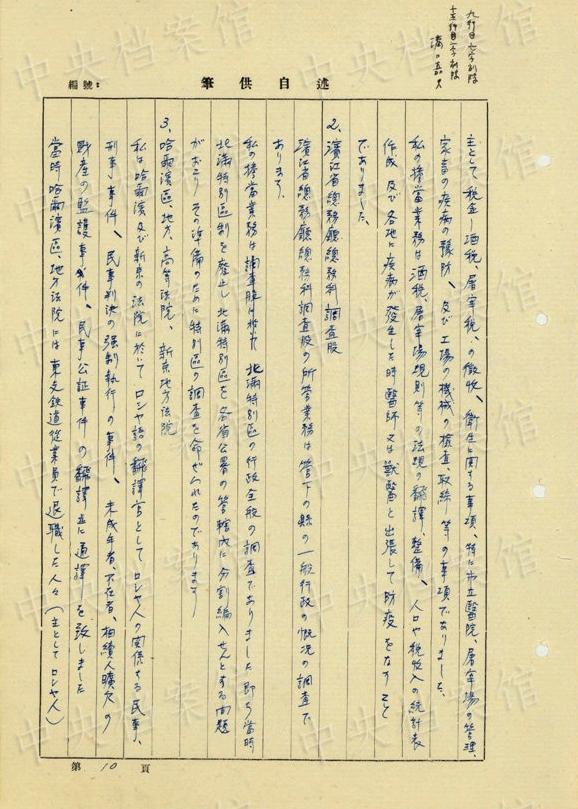 九行目六字削除
十五行目一字削除
溝口嘉夫
編號:
筆供自述
主として税金—酒税、屠宰税、の徴收、衛生に関する事項、特に市立醫院、屠宰場の管理、
家畜の疾病の豫防、及び工場の機械の検査、取締等の事項でありました。
私の擔當業務は酒税、屠宰場規則等の法規の翻譯、整備、人口や税收入の統計表
作成及び各地に疾病が發生した時醫師又は獸醫と出張して防疫をなすこと
でありました。
2、濱江省總務廳總務科調査股
濱江省總務廳總務科調査股の所管業務は管下の縣の一般行政の概況の調査で
あります。
私の擔當業務は調査股に於ける北滿特別區の行政全般の調査でありました即ち當時
北滿特別區制を廢止し北滿特別區を各省公署の管轄内に分割編入せんとする問題
がおこりその準備のために特別區の調査を命ぜられたのであります
3、哈爾濱區、地方、高等法院、新京地方法院
私は哈爾濱及び新京の法院に於いてロシヤ語の翻譯官としてロシヤ人の関係する民事、
刑事事件、民事判決の强制執行の事件、未成年者、不在者、相續人曠欠の
財産の監護事件、民事公証事件の翻譯並に通譯を致しました
當時哈爾濱區、地方法院には東支鉄道從業員で退職した人々(主としてロシヤ人)
第 10 頁
中央档案馆
中央档案馆
中央档案馆
中央档案馆
中央档案馆
中央档案馆